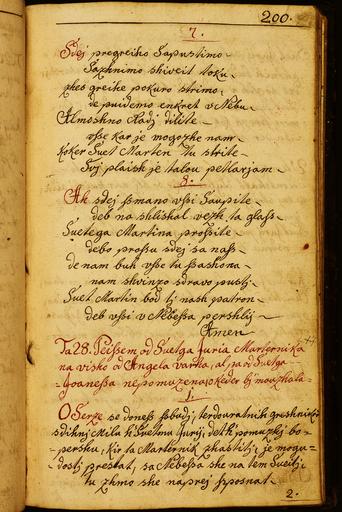 200.
7.
Sdej pregreiho Sapustimo
Sazhnimo shiveit toku
zhes greihe pokuro strimo
de puidemo enkret v Nebu
Almoshno Radj dilite
vse kar je mogozhe nam
kiker Suet Marten tu strite
Svj plaish je talou petlarjam
8.
Ah sdej ssmano vssi Saupite
deb na shlishal vezh ta glass
Suetega Martina prossite
debo prossu sdej sa nass
de nam buh vsse tu ssashona
nam shvinzo sdravo pustj
Suet Martin bod tj nash patron
deb vssi v Nebessa pershlij
Amen
Ta 28. Peissem od Suetga Juria Marternika
na visho od Angela varha, al pa od Suetga
Joanessa nepomuzena
1.
O Serze se doness sbudj, terdouratnik greshnik
sdihnj Milu k Suetmu Jurij, det h pomuzhj bo-
pershu, kir ta Marternik zhastitlj, je mogu-
dostj presta, sa Nebessa she na tem Sueitj
tu zhmo she naprej spoosnat
2.